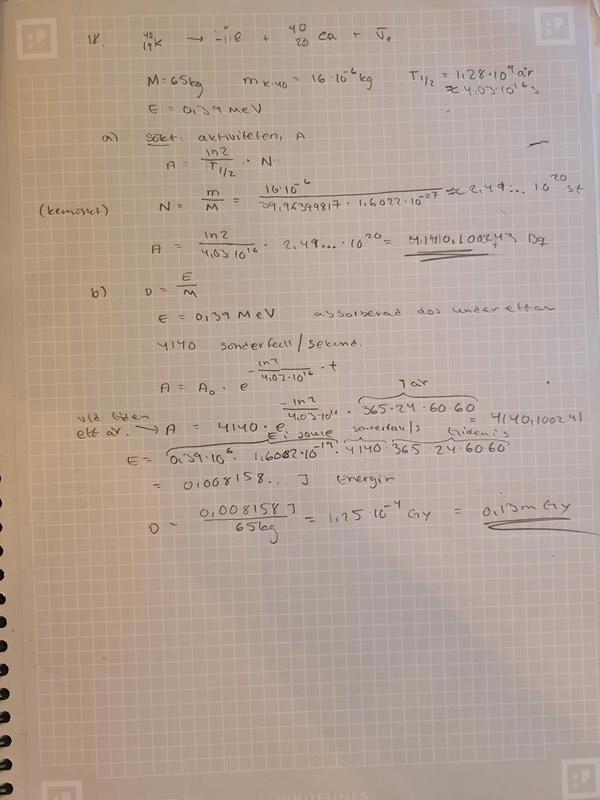 18. ⁴⁰₁₉K → ⁰₋₁e + ⁴⁰₂₀Ca + ν̄ₑ
M = 65kg m_K-40 = 16·10⁻⁶kg T₁/₂ = 1,28·10⁹år
≈ 4,03·10¹⁶s
E = 0,39 MeV
a) Sökt: aktiviteten, A
A = ln2/T₁/₂ · N
(kemoset) N = m/M = 16·10⁻⁶/39,96399817·1,6022·10⁻²⁷ ≈ 2,49... 10²⁰ st
A = ln2/4,03·10¹⁶ · 2,49...·10²⁰ = 4140,100243 Bq
b) D = E/M
E = 0,39 MeV absolberad dos under ett år
4140 sönderfall/sekund.
A = A₀ · e^(-ln2/4,03·10¹⁶ · t)
1 år
vid tiden
ett år. → A = 4140 · e^(-ln2/4,03·10¹⁶ · 365·24·60·60) = 4140,100241
E i joule sönderfall/s tiden i s
E = 0,39·10⁶·1,6082·10⁻¹⁹·4140·365 24·60·60
= 0,008158... J Energin
D = 0,008158J/65kg = 1,25·10⁻⁴ Gy = 0,13mGy
WHITELINES